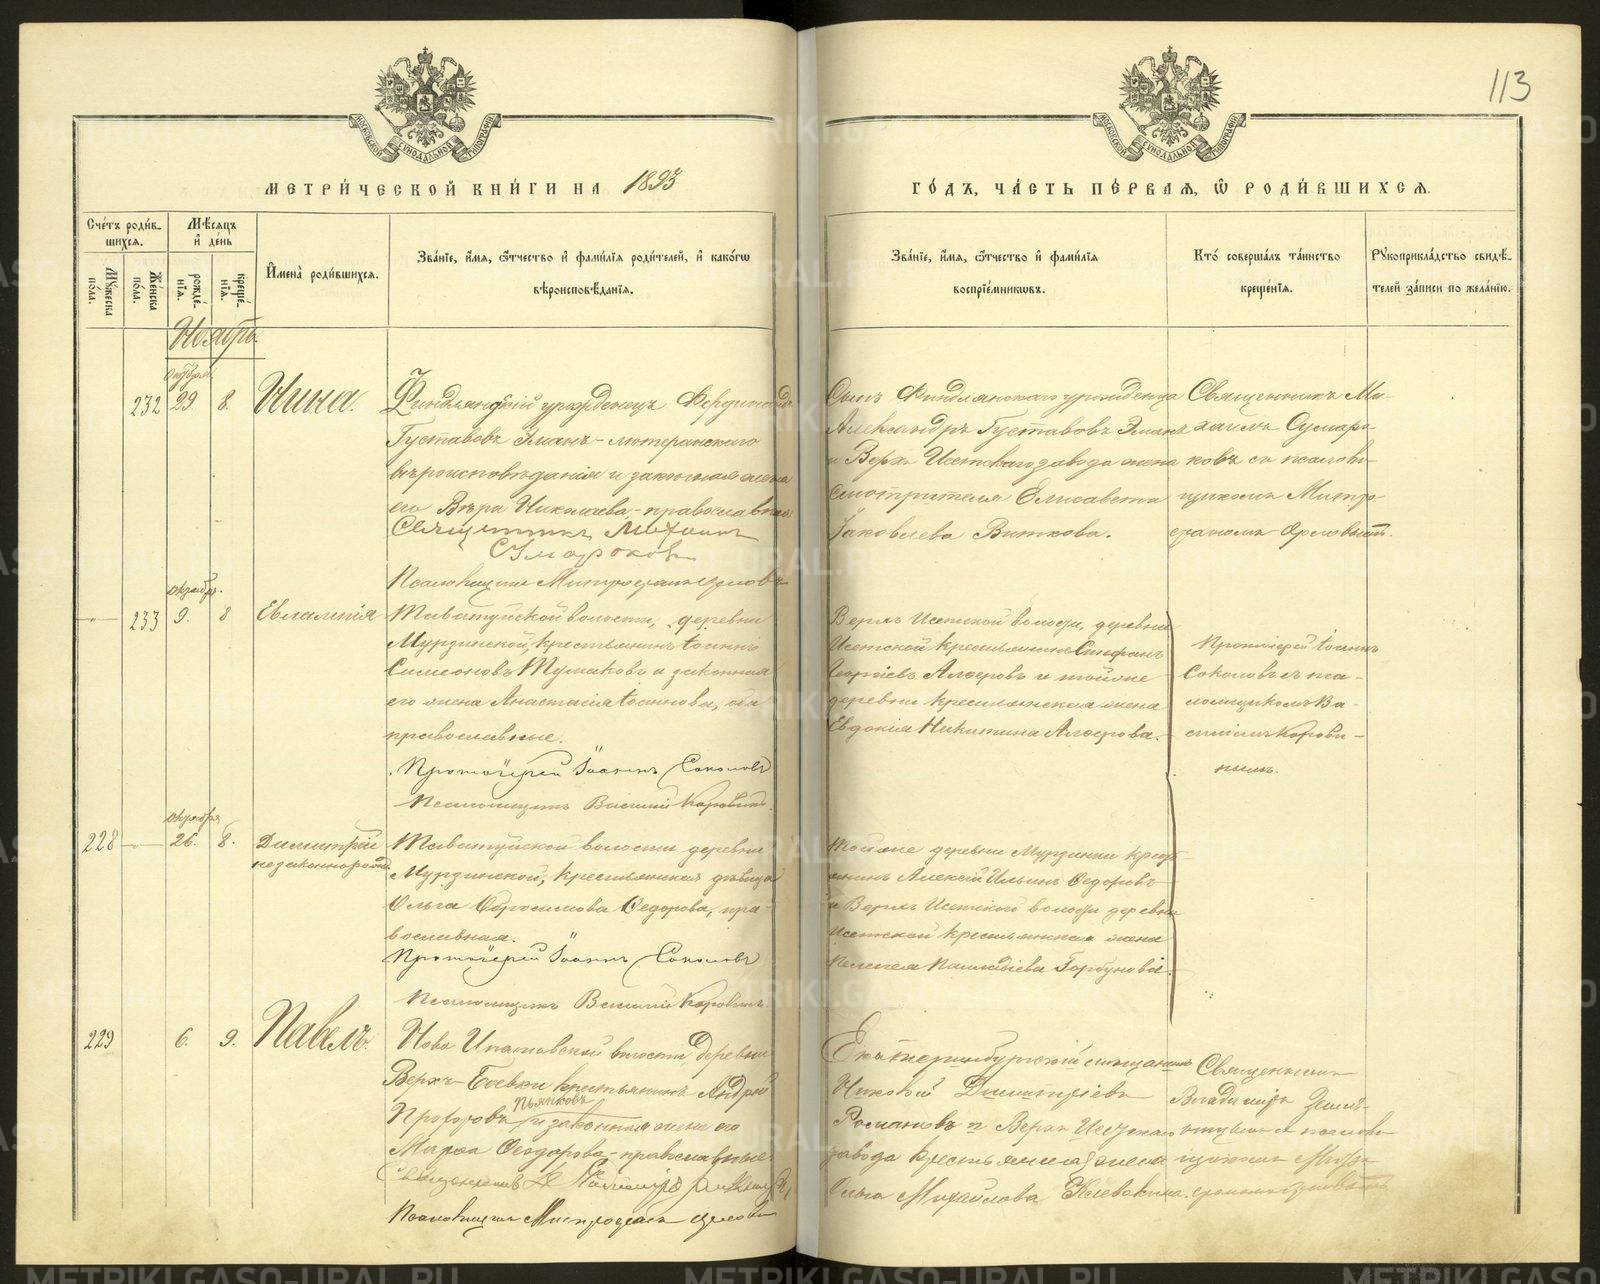 113
МЕТРИ́ЧЕСКОЙ КНИ́ГИ НА 1893
ГО́ДЪ, ЧА́СТЬ ПЕ́РВАЯ, Ѿ РОДИ́ВШИХСЯ.
Сче́тъ роди́в-
шихся.
Мѣ́сяцъ
и҆ де́нь
Му́жеска по́ла.
Же́нска по́ла.
рожде́нїя.
креще́нїя.
И҆мена̀ роди́вшихся.
Зва́нїе, и҆́мя, ѻ҆́тчество и҆ фами́лїя роди́телей, и҆ како́гѡ
вѣроисповѣ́данїя.
Зва́нїе, и҆́мя, ѻ҆́тчество и҆ фами́лїя
воспрїе́мникѡвъ.
Кто̀ соверша́лъ та́инство
креще́нїя.
Рꙋкоприкла́дство свидѣ́-
телей за́писи по жела́нїю.
Ноябрь.
октября
232 29. 8. Нина.
Финляндскій урожденецъ Фердинандъ
Густавовъ Эманъ - лютеранскаго
вѣроисповѣданія и законная жена
его Вѣра Николаева, - православная
Священникъ Михаилъ
Сумароковъ
Псаломщикъ Митрофанъ Орловъ
Сынъ Финдлянскаго урожденца
Александръ Густавовъ Эманъ
и Верхъ Исетскаго завода жена
смотрителя Елисавета
Яковлева Виткова.
Священникъ Ми-
хаилъ Сумаро-
ковъ съ псалом-
щикомъ Митро-
фаномъ Орловымъ.
октября
233 9. 8 Евлампія
Таватуйской волости, деревни
Мурзинской, крестьянинъ Іоаннъ
Симеоновъ Тумаковъ и законная
его жена Анастасія Іоаннова, оба
православные.
Протоіерей Іоаннъ Соколовъ
Псаломщикъ Василій Коровинъ.
Верхъ Исетской волости, деревни
Исетской крестьянинъ Стефанъ
Георгіевъ Алферовъ и той же
деревни крестьянская жена
Евдокія Никитина Алферова.
Протоіерей Іоаннъ
Соколовъ съ пса-
ломщикомъ Ва-
силіемъ Корови-
нымъ.
октября
228 26. 8. Димитрій
незаконнорожд.
Таватуйской волости деревни
Мурзинской, крестьянская дѣвица
Ольга Абросимова Федорова, пра-
вославная.
Протоіерей Іоаннъ Соколовъ
Псаломщикъ Василій Коровинъ.
Той же деревни Мурзинки крест-
янинъ Алексѣй Ильинъ Федоровъ
и Верхъ Исетской волости деревни
Исетской крестьянская жена
Пелагея Палладіева Горбунова.
229 6. 9. Павелъ.
Ново Ипатовской волости, деревни
Верхъ-Боевки крестьянинъ Андрей
Прохоровъ Пьянковъ и законная жена его
Марѳа Ѳеодорова - православные.
Священникъ
Псаломщикъ Митрофанъ Орловъ
Екатеринбургскій мѣщанинъ
Николай Димитріевъ
Романовъ и Верхъ Исетскаго
завода крестьянская жена
Ольга Михайлова Клевакина.
Священникъ
Владиміръ Земля-
ницынъ и псалом-
щикомъ Митро-
фаномъ Орловымъ
METRIKI.GASO-URAL.RU